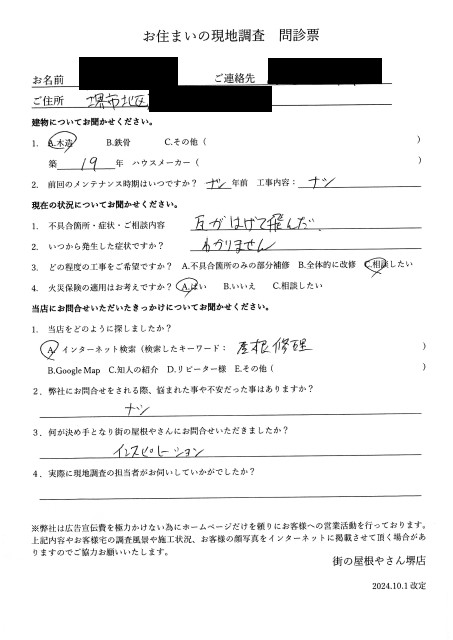 お住まいの現地調査 問診票
お名前 ご連絡先
ご住所 堺市北区
建物についてお聞かせください。
1. A.木造 B.鉄骨 C.その他（ ）
築 19 年 ハウスメーカー（ ）
2. 前回のメンテナンス時期はいつですか？ ナシ 年前 工事内容： ナシ
現在の状況についてお聞かせください。
1. 不具合箇所・症状・ご相談内容 瓦がはげて飛んだ。
2. いつから発生した症状ですか？ わかりません
3. どの程度の工事をご希望ですか？ A.不具合箇所のみの部分補修 B.全体的に改修 C.相談したい
4. 火災保険の適用はお考えですか？ A.はい B.いいえ C.相談したい
当店にお問合せいただいたきっかけについてお聞かせください。
1. 当店をどのように探しましたか？
A. インターネット検索（検索したキーワード： 屋根修理 ）
B.Google Map C.知人の紹介 D.リピーター様 E.その他（ ）
２. 弊社にお問合せをされる際、悩まれた事や不安だった事はありますか？
ナシ
３. 何が決め手となり街の屋根やさんにお問合せいただきましたか？
インスピレーション
４. 実際に現地調査の担当者がお伺いしていかがでしたか？
※弊社は広告宣伝費を極力かけない為にホームページだけを頼りにお客様への営業活動を行っております。
上記内容やお客様宅の調査風景や施工状況、お客様の顔写真をインターネットに掲載させて頂く場合があ
りますのでご協力お願いいたします。
街の屋根やさん堺店
2024.10.1 改定